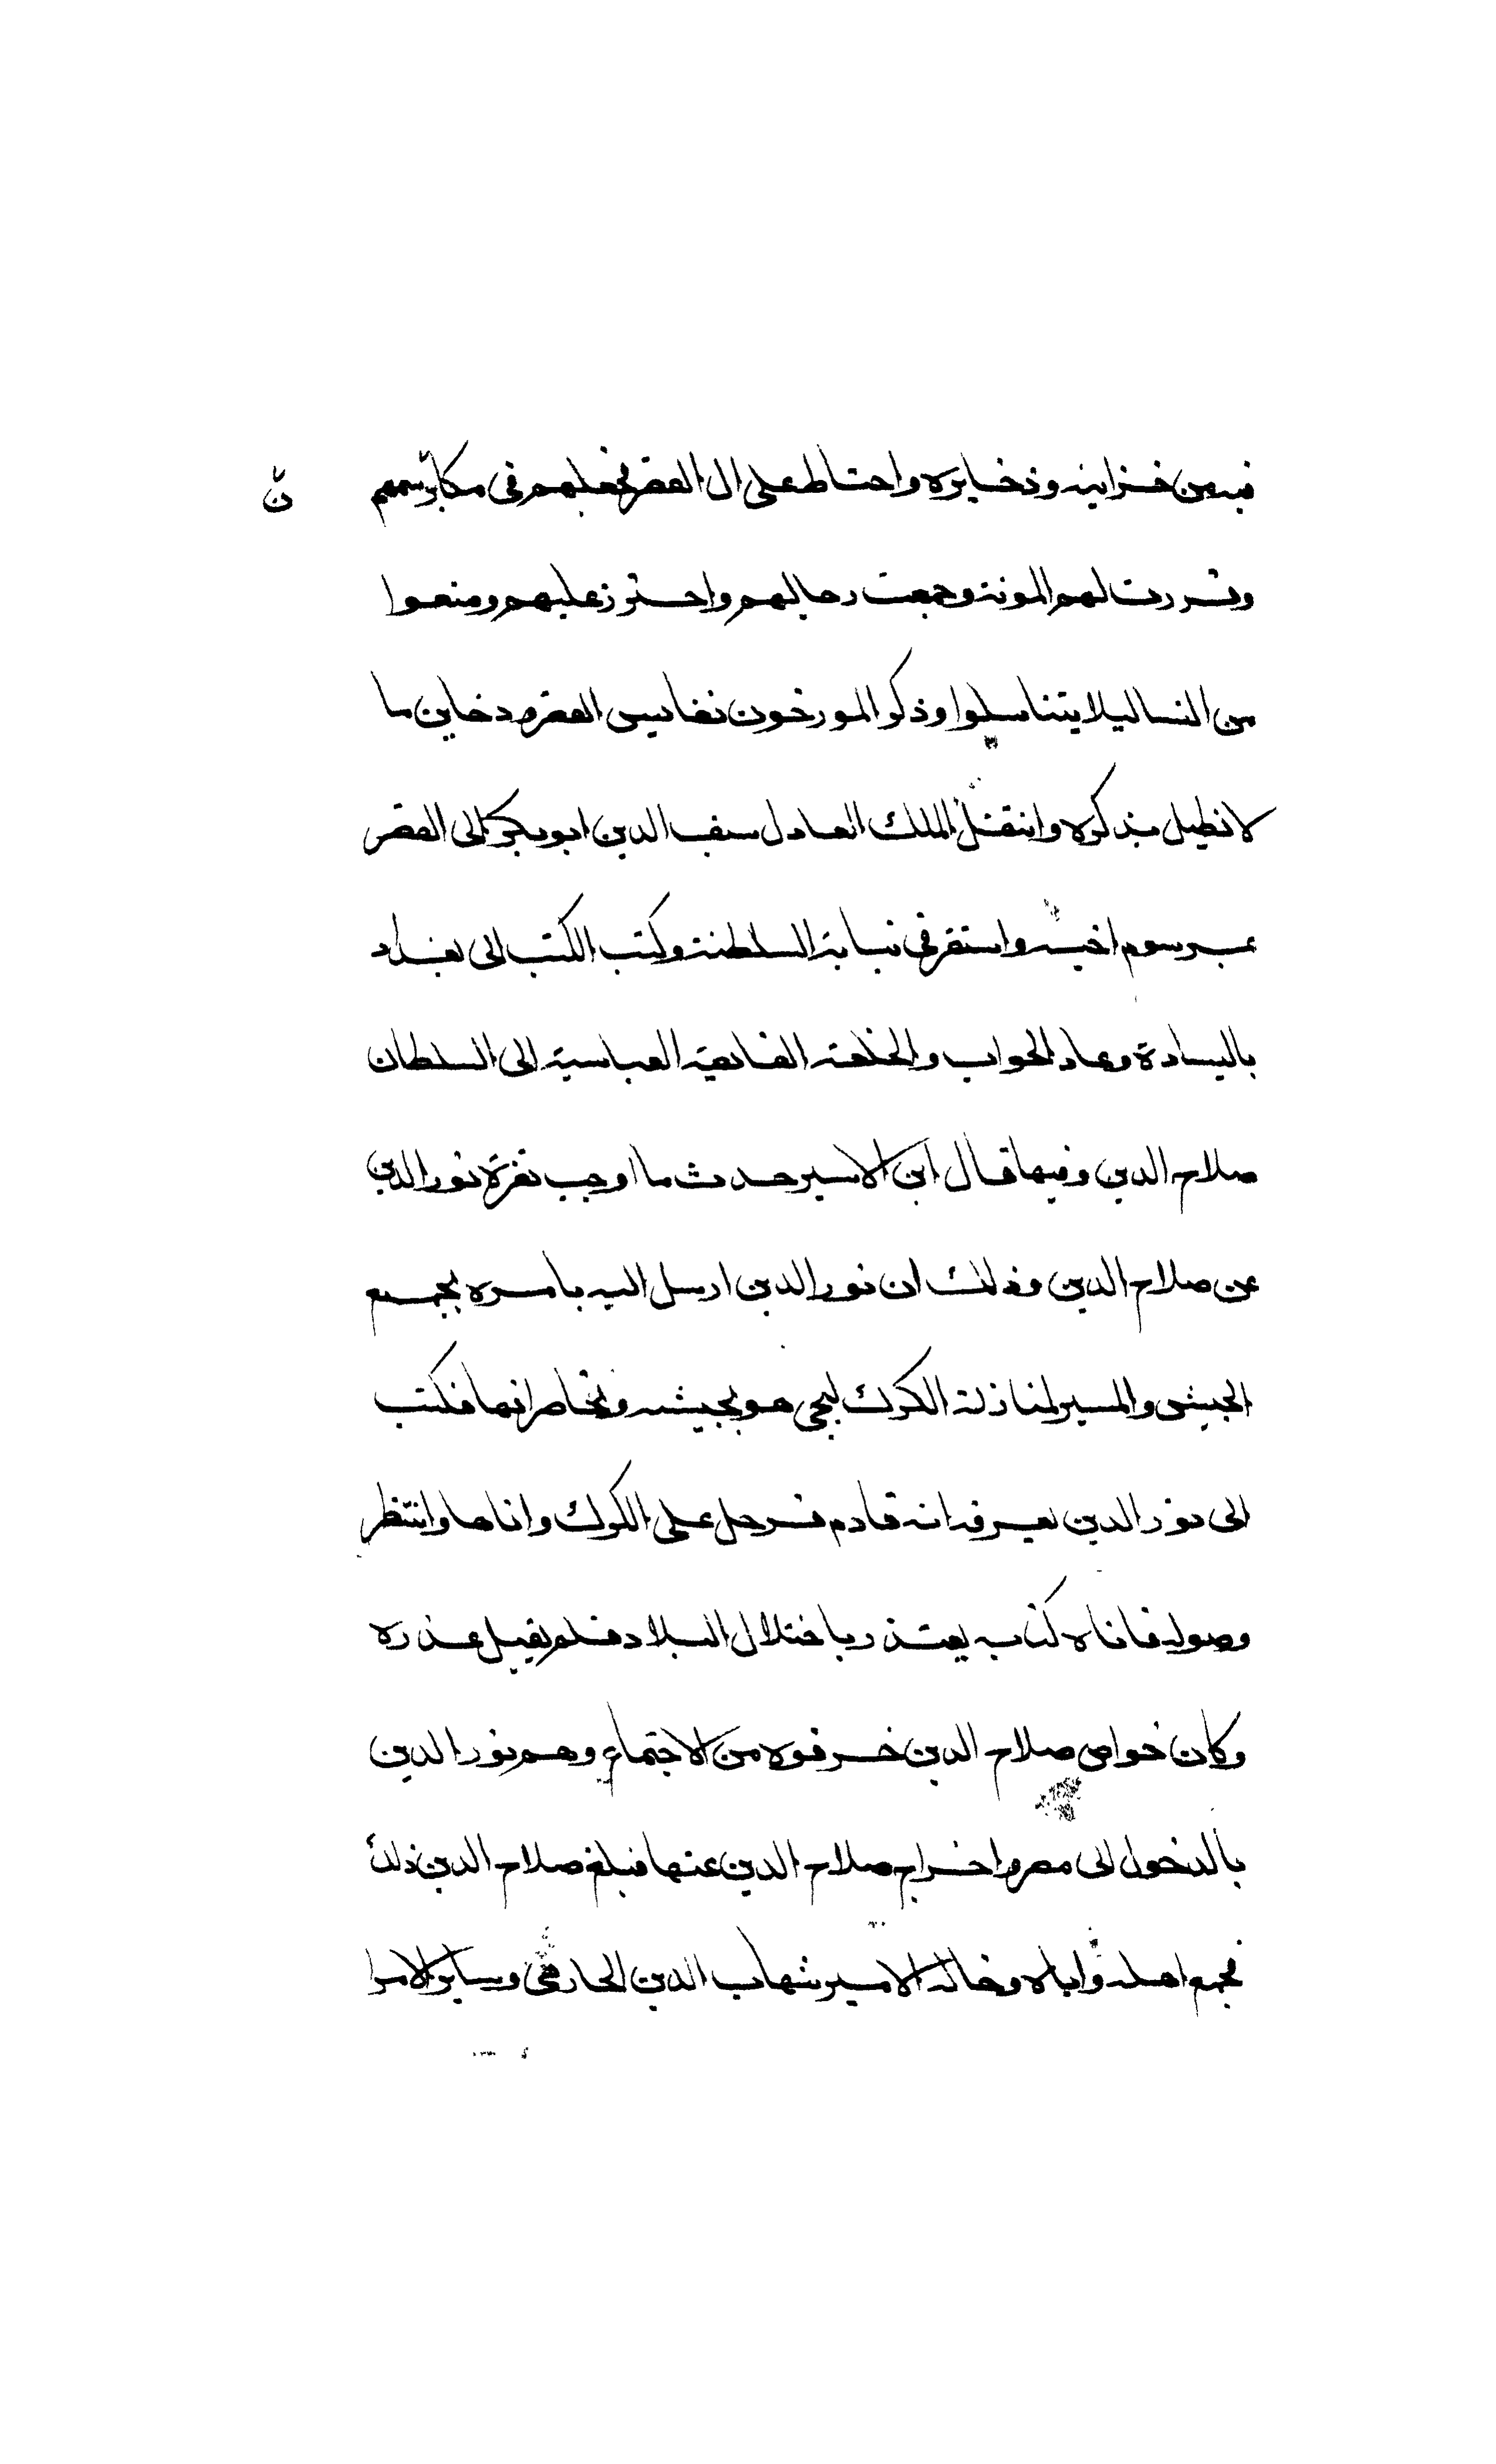 فيه من خزاينه وذخايره واحتاط على ال القصر فجعلهم في مكان برسمهم ن
وقررت لهم المونة وجمعت رجالهم واحترز عليهم ومنعوا
من النسا ليلا يتناسلوا وذكر المورخون نفايس القصر وذخاين ما
لا نطيل بذكره وانتقل الملك العادل سيف الدين ابو بكر الى القصر
بمرسوم اخيه واستقر في نيابة السلطنة وكتب الكتب الى بغداد
باليسادة وعاد الجواب والخلعة الفايقية العباسية الى السلطان
صلاح الدين وفيها قال ابن الاسير حدث ما اوجب نفرة نور الدين
عن صلاح الدين وذلك ان نور الدين ارسل اليه يامره بجمع
الجيش والمسير لمنازلة الكرك ليجى هو بجيشه ويحاصرانها فكتب
الى نور الدين يعرفه انه قادم فرحل على الكرك واتاها وانتظر
وصوله فاتاه كتابه يعتذر باختلال البلاد فلم يقبل عذره
وكان خواص صلاح الدين خوفوه من الاجتماع وهم نور الدين
بالدخول الى مصر واخراج صلاح الدين عنها فبلغ صلاح الدين ذلك
فجمع اهله واباه وخاله الامير شهاب الدين الحارمى وساير الامرا